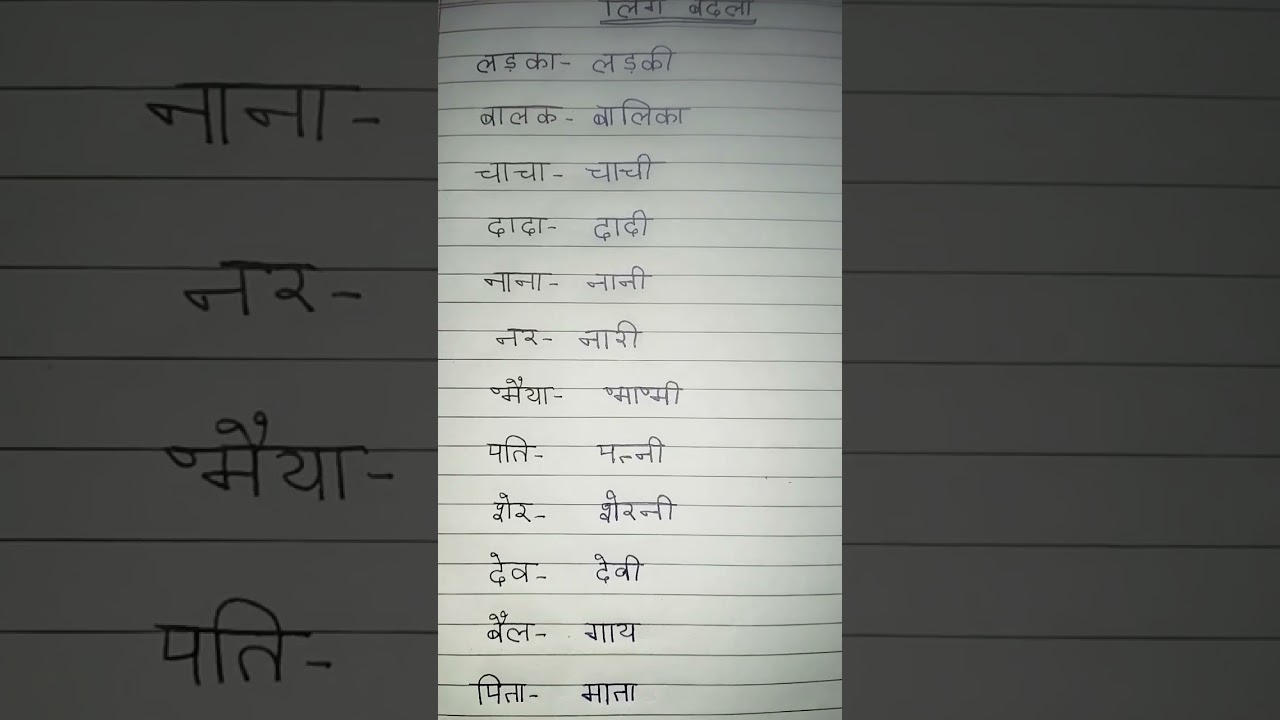 लिंग बदलो
लड़का- लड़की
बालक- बालिका
चाचा- चाची
दादा- दादी
नाना- नानी
नर- नारी
भैया- भाभी
पति- पत्नी
शेर- शेरनी
देव- देवी
बैल- गाय
पिता- माता
नाना-
नर-
भैया-
पति-